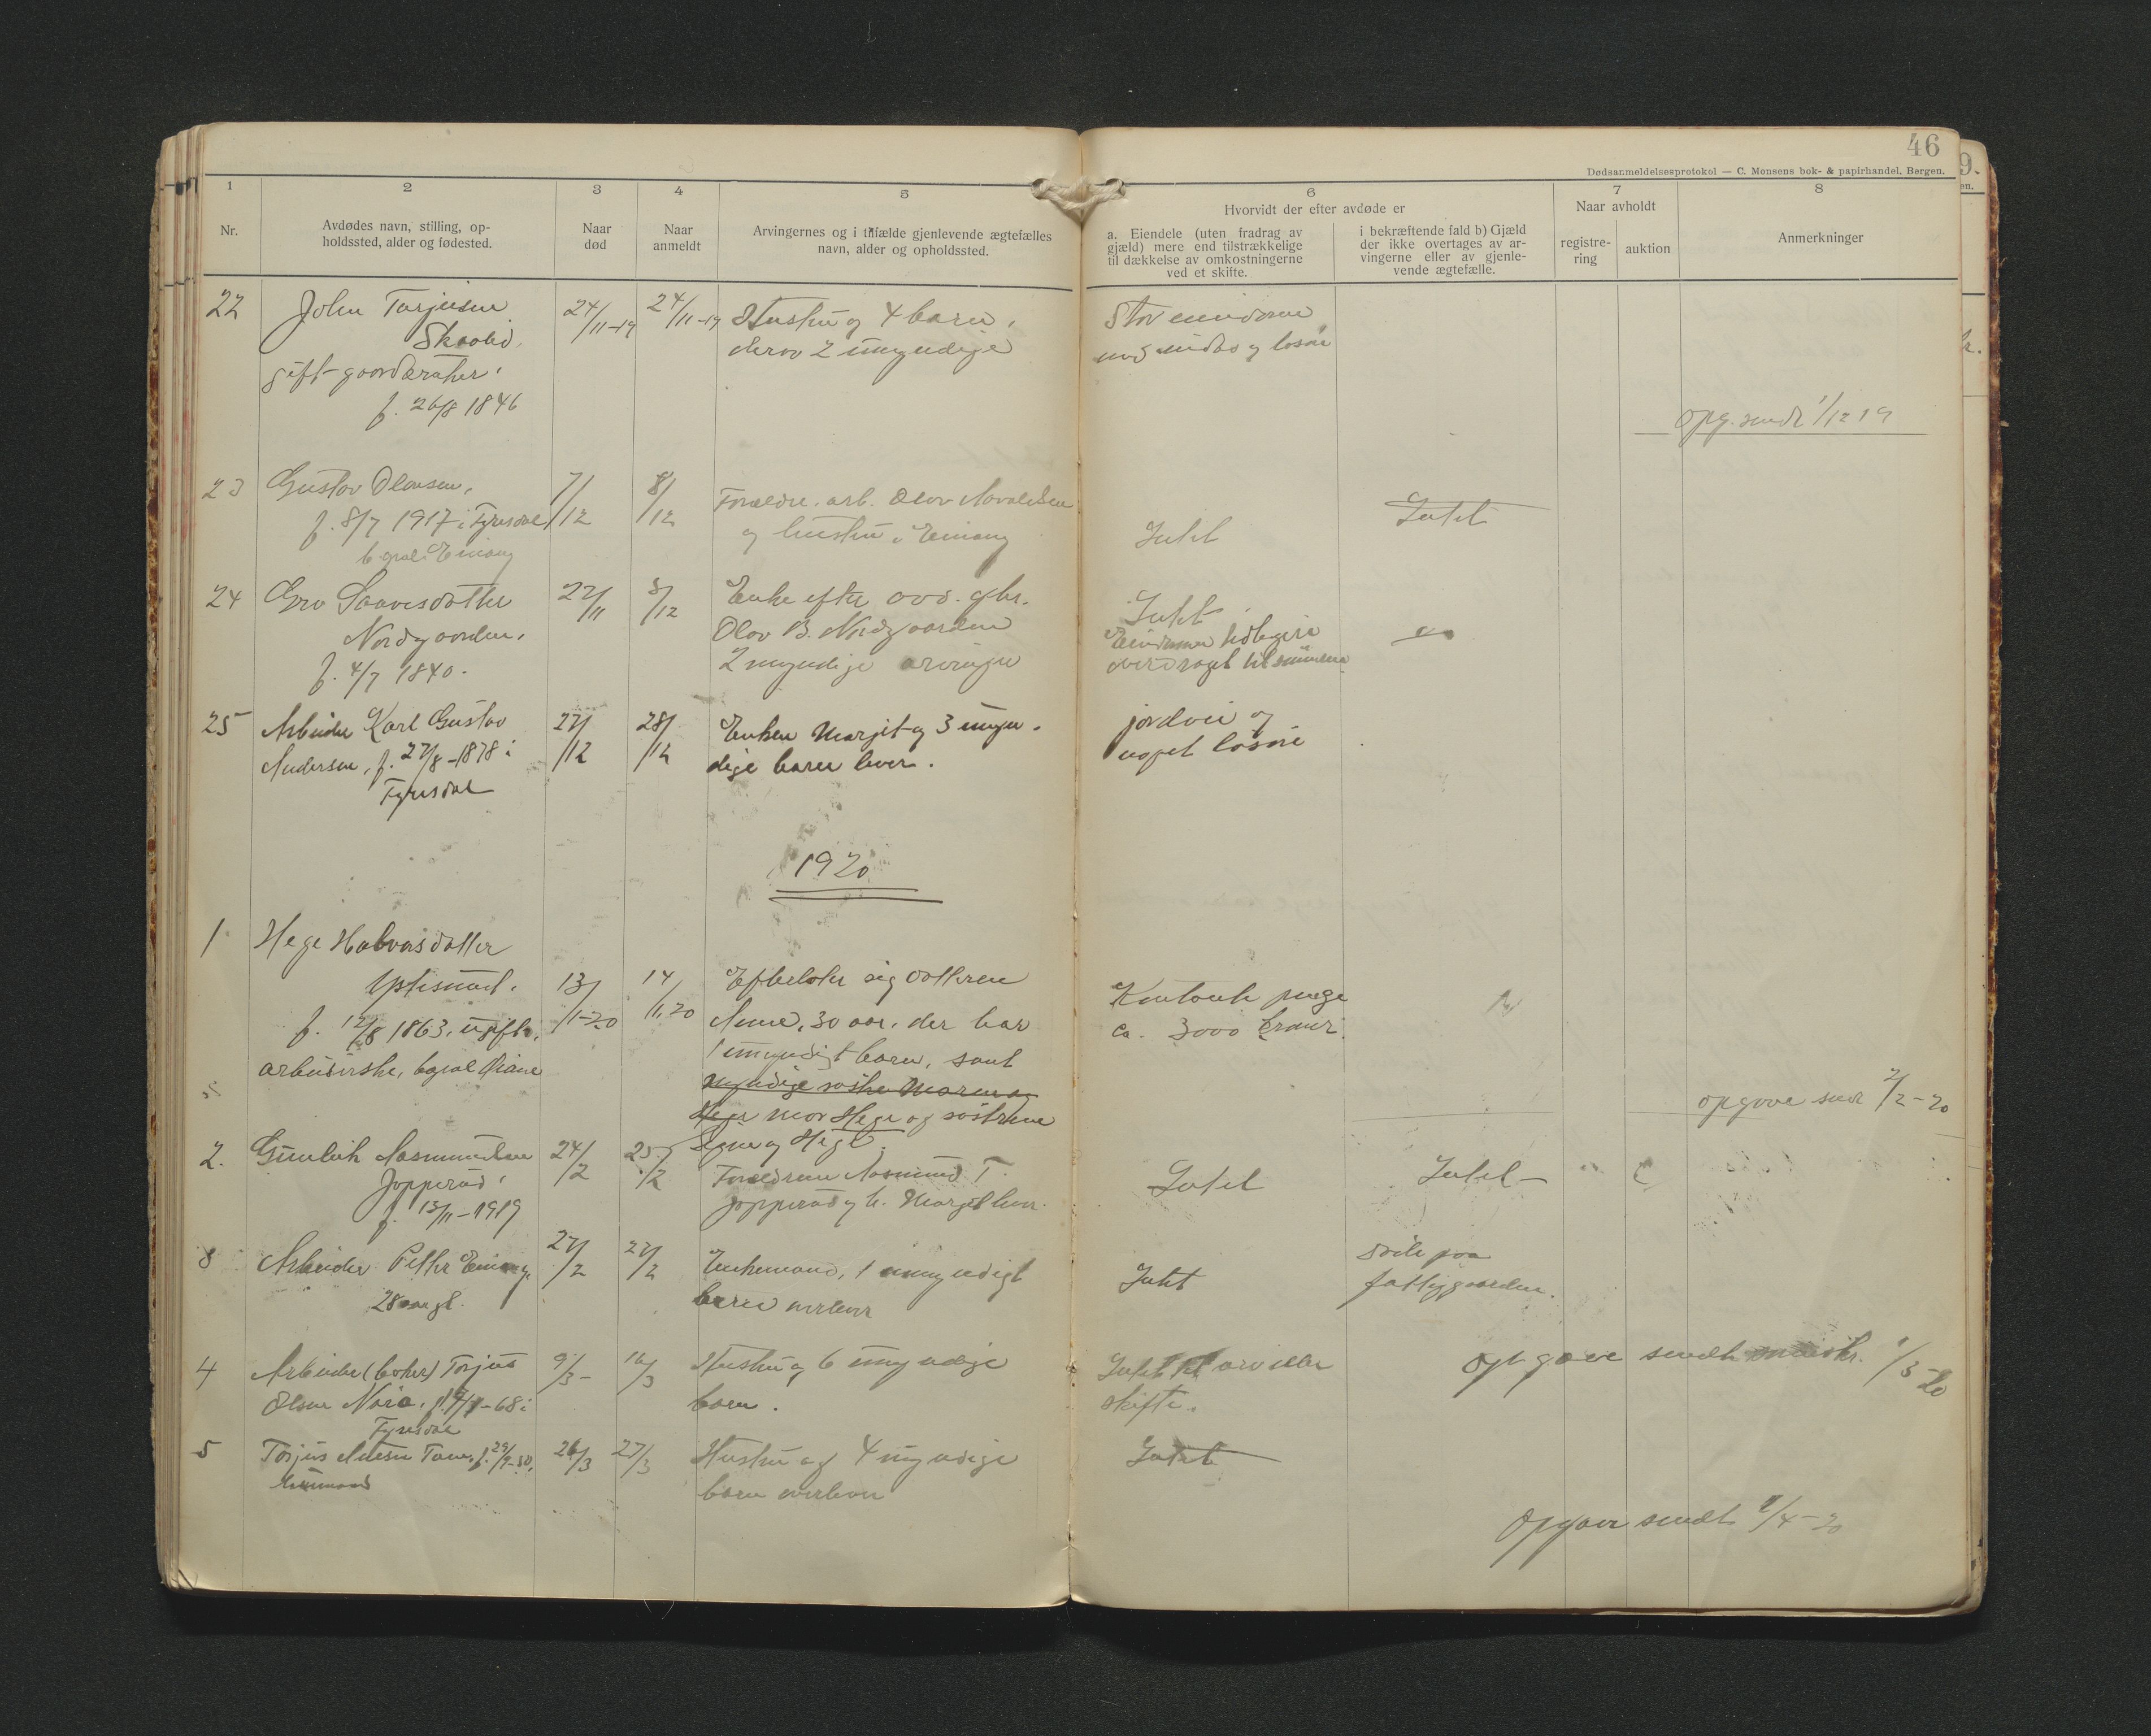 46
Dødsanmeldelsesprotokol — C. Monsens bok- & papirhandel, Bergen.
1
2
3
4
5
6
7
8
Nr.
Avdødes navn, stilling, op-
holdssted, alder og fødested.
Naar
død
Naar
anmeldt
Arvingernes og i tilfælde gjenlevende ægtefælles
navn, alder og opholdssted.
Hvorvidt der efter avdøde er
a. Eiendele (uten fradrag av
gjæld) mere end tilstrækkelige
til dækkelse av omkostningerne
ved et skifte.
i bekræftende fald b) Gjæld
der ikke overtages av ar-
vingerne eller av gjenle-
vende ægtefælle.
Naar avholdt
registre-
ring
auktion
Anmerkninger
22
John Tarjeisen
gift
f. 26/8 1846
24/11-19
24/11-19
Hustru og 4 barn,
derav 2 umyndige
Stor eiendom
med indbo og løsøre
opg. sendt 1/12 19
23
Gustav Olavsen,
f. 8/7 1917 i Fyresdal
7/12
8/12
Forældre, arb. Olav
og hustru,
Intet
Intet
24
Gro Saavesdatter
Nordgaarden,
f. 4/7 1840.
22/11
8/12
Enke efter avd. gbr.
Olav B. Nordgaarden
2 myndige arvinger
Intet
Eiendommen tidligere
overdraget til sønnene
25
Arbeider Karl Gustav
Andersen, f. 27/8-1878 i
Fyresdal
27/12
28/12
Enken Margit og 3 umyn-
dige barn lever.
jordvei og
noget løsøre
1920
1
Hege Halvorsdatter
f. 12/8 1863, ugift,
arbeiderske,
13/1-20
14/1,20
Efterlater sig datteren
Anne, 30 aar, der har
1 umyndigt barn, samt
myndige
Hege mor Hege og søstrene
Signe og Hege.
Kontante penge
ca. 3000 kroner.
opgave sendt 2/2-20
2.
Gunleik Aasmundsen
Jopperud,
f. 13/11-1919
24/2
25/2
Forældrene Aasmund T.
Jopperud og h. Margit lever.
Intet
Intet
3
Arbeider Petter
28 aar gl.
27/2
27/2
Enkemand, 1 umyndigt
barn overlever
Intet
paa
fattiggaarden.
4
Arbeider (baker) Torjus
Olsen
Fyresdal
9/3-
16/3
Hustru og 6 umyndige
barn.
Intet til arv eller
skifte.
Opgave sendt
1/3-20
5
Torjus
26/3
27/3
Hustru og 4 myndige
barn overlever
Intet
Opgave sendt 1/4-20